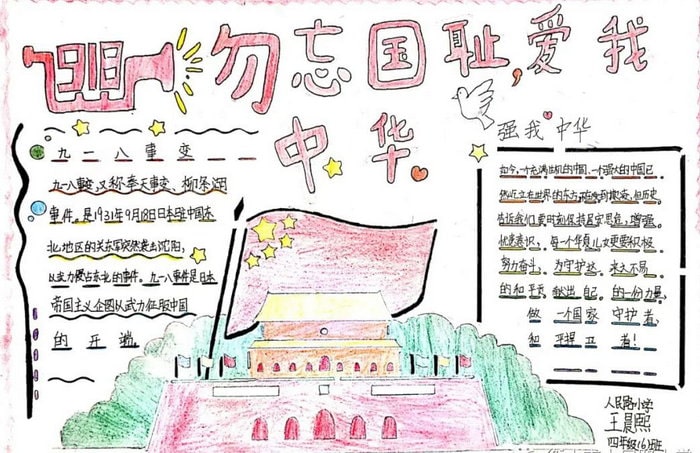 918
勿忘国耻,爱我
中华
九一八事变
九一八事变又称奉天事变、柳条湖
事件。是1931年9月18日本驻中国东
北地区的关东军突然袭击沈阳,
以武力侵占东北的事件。九一八事件是日本
帝国主义企图从武力征服中国
的开端。
强我中华
如今,一个充满生机的中国,一个强大的中国已
然屹立在世界的东方,
告诉我们要时刻保持居安思危,增强
忧患意识,每一个华夏儿女更要积极
努力奋斗,为守护这来之不易
的和平贡献出自己的一份力量,
做一个国家守护者,
和平捍卫者!
人民路小学
王晨熙
四年级(6)班